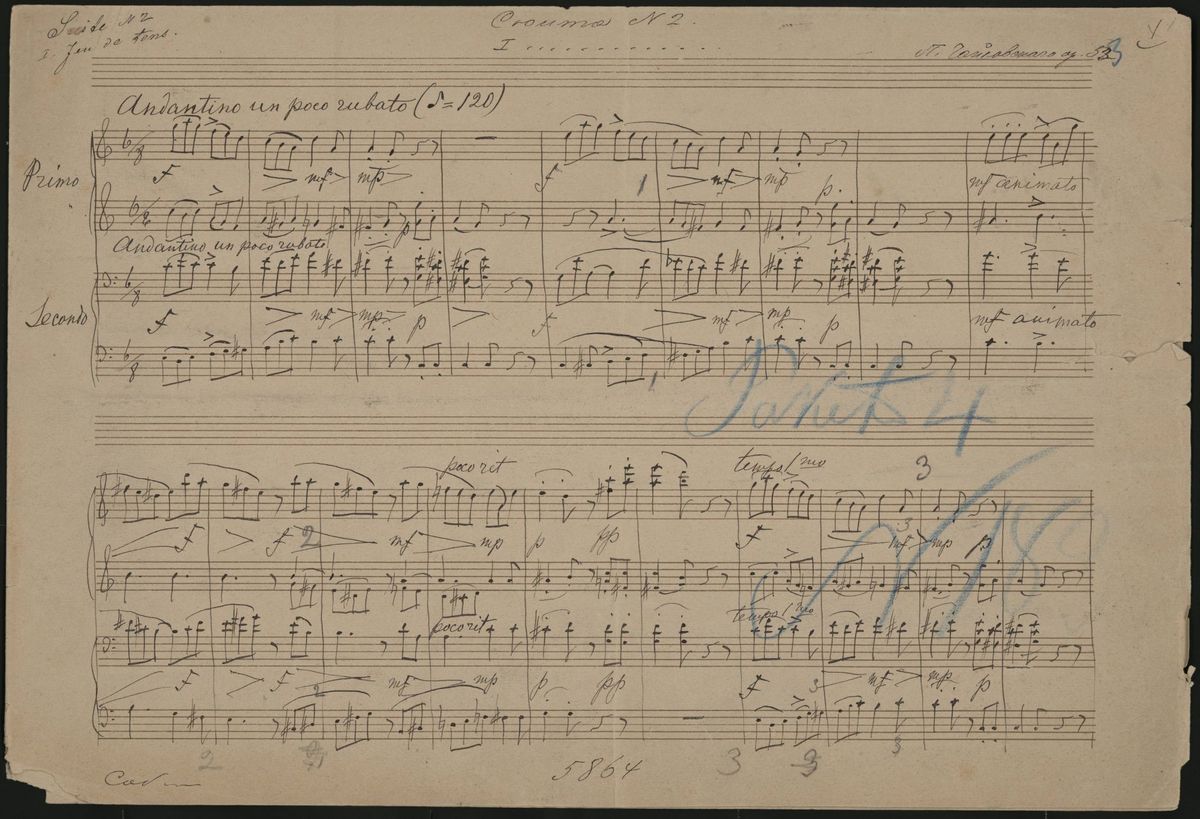 Suite N 2
I. Jeu de sons.
Сюита N 2.
I
П. Чайковскаго op. 53
Andantino un poco rubato (♪=120)
Primo
f > mf > mp f > mf > mp p. mf animato
Andantino un poco rubato
Secondo
f > mf > mp > p > f > mf > mp p mf animato
1
1
4
poco rit
tempo I mo
3
f > f 2 mf mp p pp f 3 mf > mp p
poco rit
tempo I mo
f > f mf mp p pp f > mf > mp p
2 3
2 3 3 3
5864